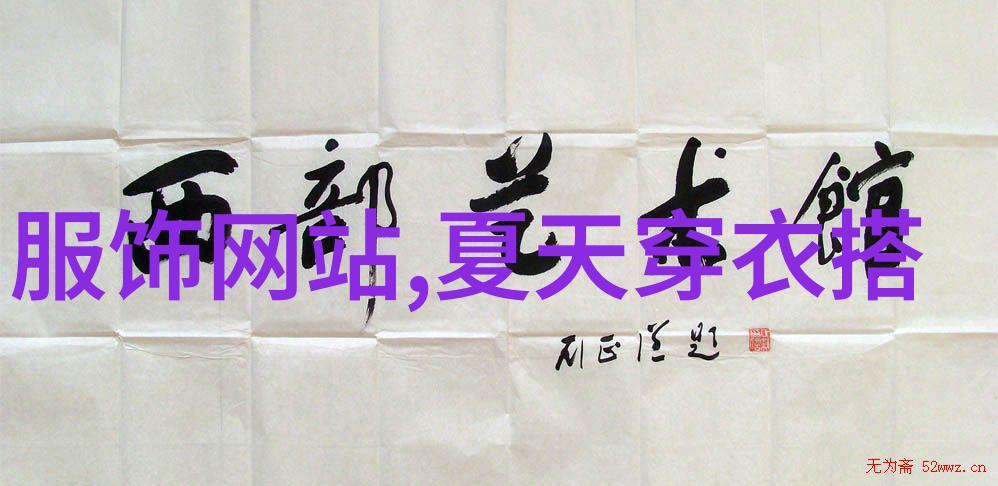 西部艺术馆
服饰网站,夏天穿衣搭
题
无为斋 52wwz.cn